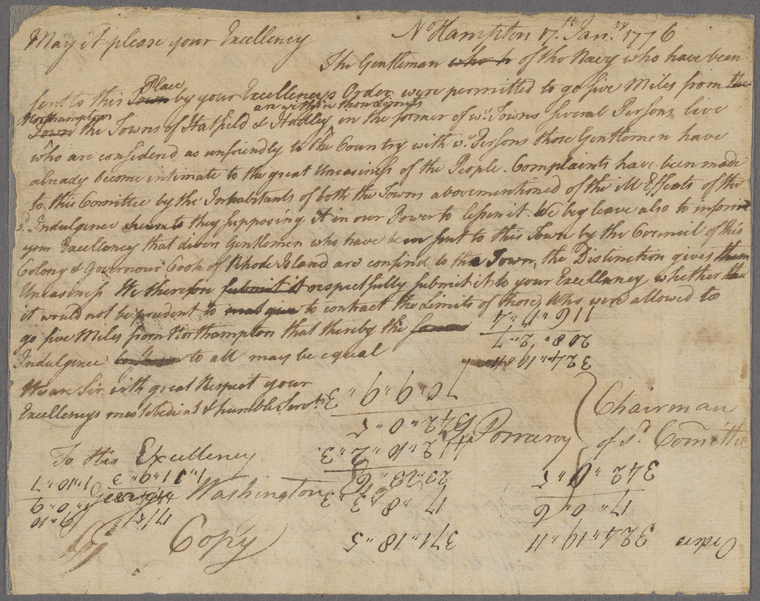 No Hampton 17th Jany 1776
May it please your Excellency
The Gentlemen who h of the Navy who have been
sent to this Town Place by your Excellencys Order were permitted to go five Miles from the
Town Northampton the Towns of Hatfield & Hadley are within those Limits in the former of wc Towns several Persons live
who are considered as unfriendly to the Country with wc Persons those Gentlemen have
already become intimate to the great Uneasiness of the People. Complaints have been made
to this Comittee by the Inhabitants of both the Towns abovementioned of the Ill Effects of the
sd Indulgence they supposing it in our Power to lessen it. We beg leave also to inform
your Excellency that divers Gentlemen who have been sent to this Town by the Council of this
Colony & Governour Cook of Rhode Island are confind to the Town, the Distinction gives them
Uneasiness. We therefore submit it respectfully submit it to your Excellency whether
it would not be prudent to contract the Limits of those who were allowed to
go five Miles from Northampton that thereby the
Indulgence to all may be equal
We are Sir with great Respect your
Excellencys most obedient & humble Servts
Pomeroy
Chairman
of sd Comittee
To His Excellency
George Washington
Copy
116 " 11 " 4
208 " 2 " 7
324 " 19 " 11
70 " 9 " 9
342 " 0 " 5
17 " 0 " 6
324 " 19 " 11
Orders
17 " 8 " 3
371 " 18 " 5